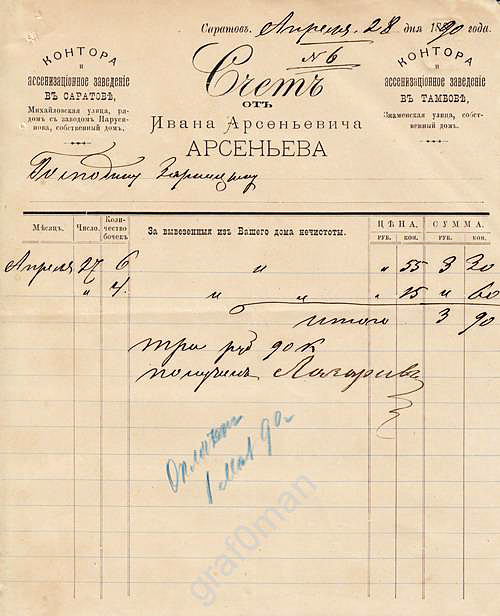 Саратовъ, Апреля 28 дня 1890 года.
№ 6
КОНТОРА
и
ассенизаціонное заведеніе
ВЪ САРАТОВѢ,
Михайловская улица, ря-
домъ съ заводомъ Паруси-
нова, собственный домъ.
Счетъ
ОТЪ
Ивана Арсеньевича
АРСЕНЬЕВА
КОНТОРА
и
ассенизаціонное заведеніе
ВЪ ТАМБОВѢ,
Знаменская улица, собст-
венный домъ.
Господину
Мѣсяцъ. Число. Коли-чество бочекъ. За вывезенныя изъ Вашего дома нечистоты. ЦѢНА. РУБ. КОП. СУММА. РУБ. КОП.
Апреля 27 6 " " 55 3 30
" 4 " " " 15 " 60
Итого 3 90
три руб 90 к
получилъ Лазаревъ
Оплаченъ
1 мая 90 г
graf0man